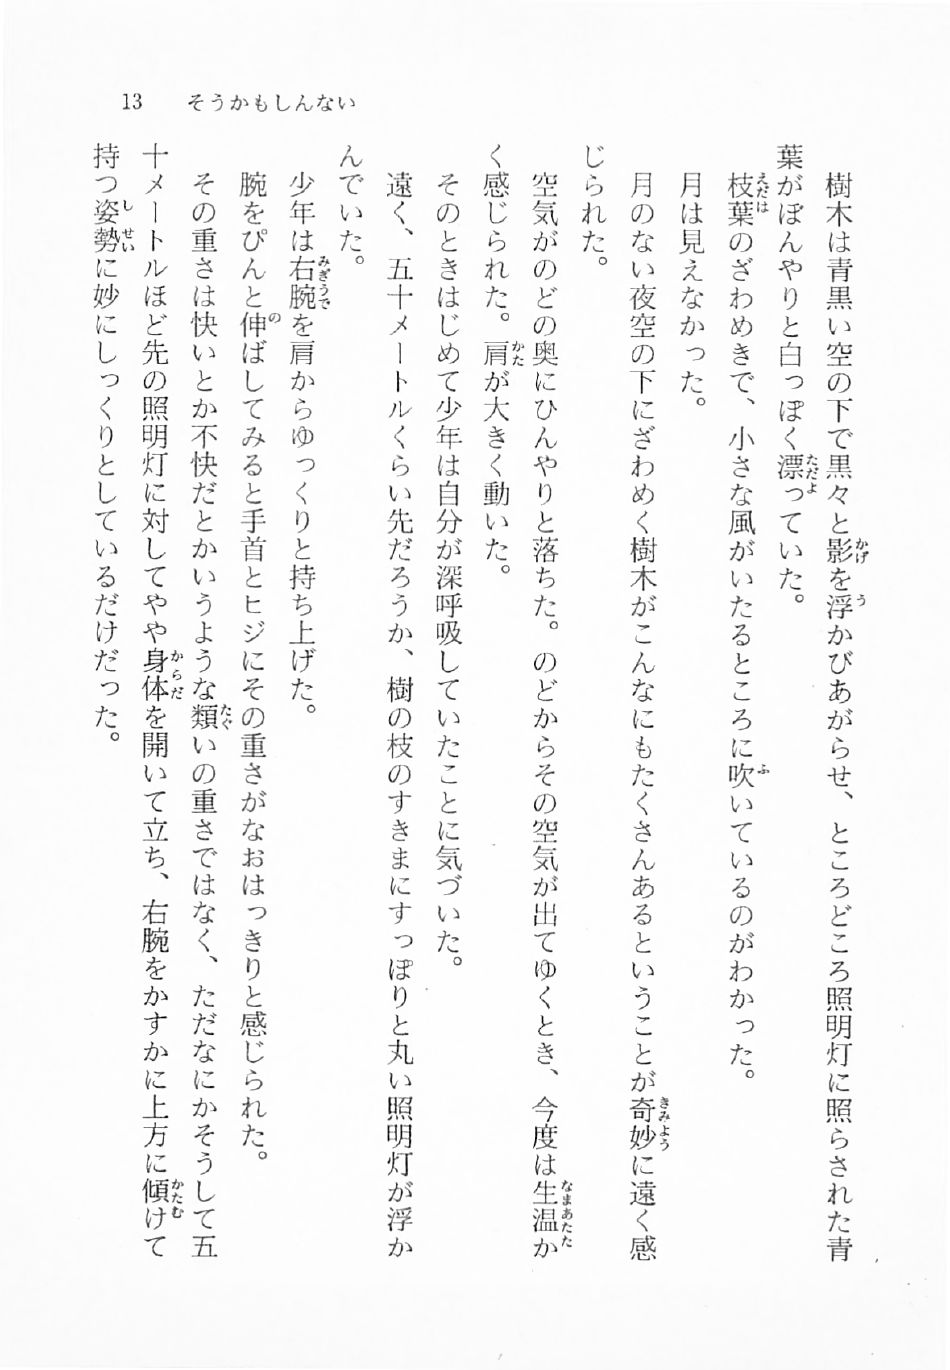 13 そうかもしんない
樹木は青黒い空の下で黒々と影を浮かびあがらせ、ところどころ照明灯に照らされた青
葉がぼんやりと白っぽく漂っていた。
枝葉のざわめきで、小さな風がいたるところに吹いているのがわかった。
月は見えなかった。
月のない夜空の下にざわめく樹木がこんなにもたくさんあるということが奇妙に遠く感
じられた。
空気がのどの奥にひんやりと落ちた。のどからその空気が出てゆくとき、今度は生温か
く感じられた。肩が大きく動いた。
そのときはじめて少年は自分が深呼吸していたことに気づいた。
遠く、五十メートルくらい先だろうか、樹の枝のすきまにすっぽりと丸い照明灯が浮か
んでいた。
少年は右腕を肩からゆっくりと持ち上げた。
腕をぴんと伸ばしてみると手首とヒジにその重さがなおはっきりと感じられた。
その重さは快いとか不快だとかいうような類いの重さではなく、ただなにかそうして五
十メートルほど先の照明灯に対してやや身体を開いて立ち、右腕をかすかに上方に傾けて
持つ姿勢に妙にしっくりとしているだけだった。